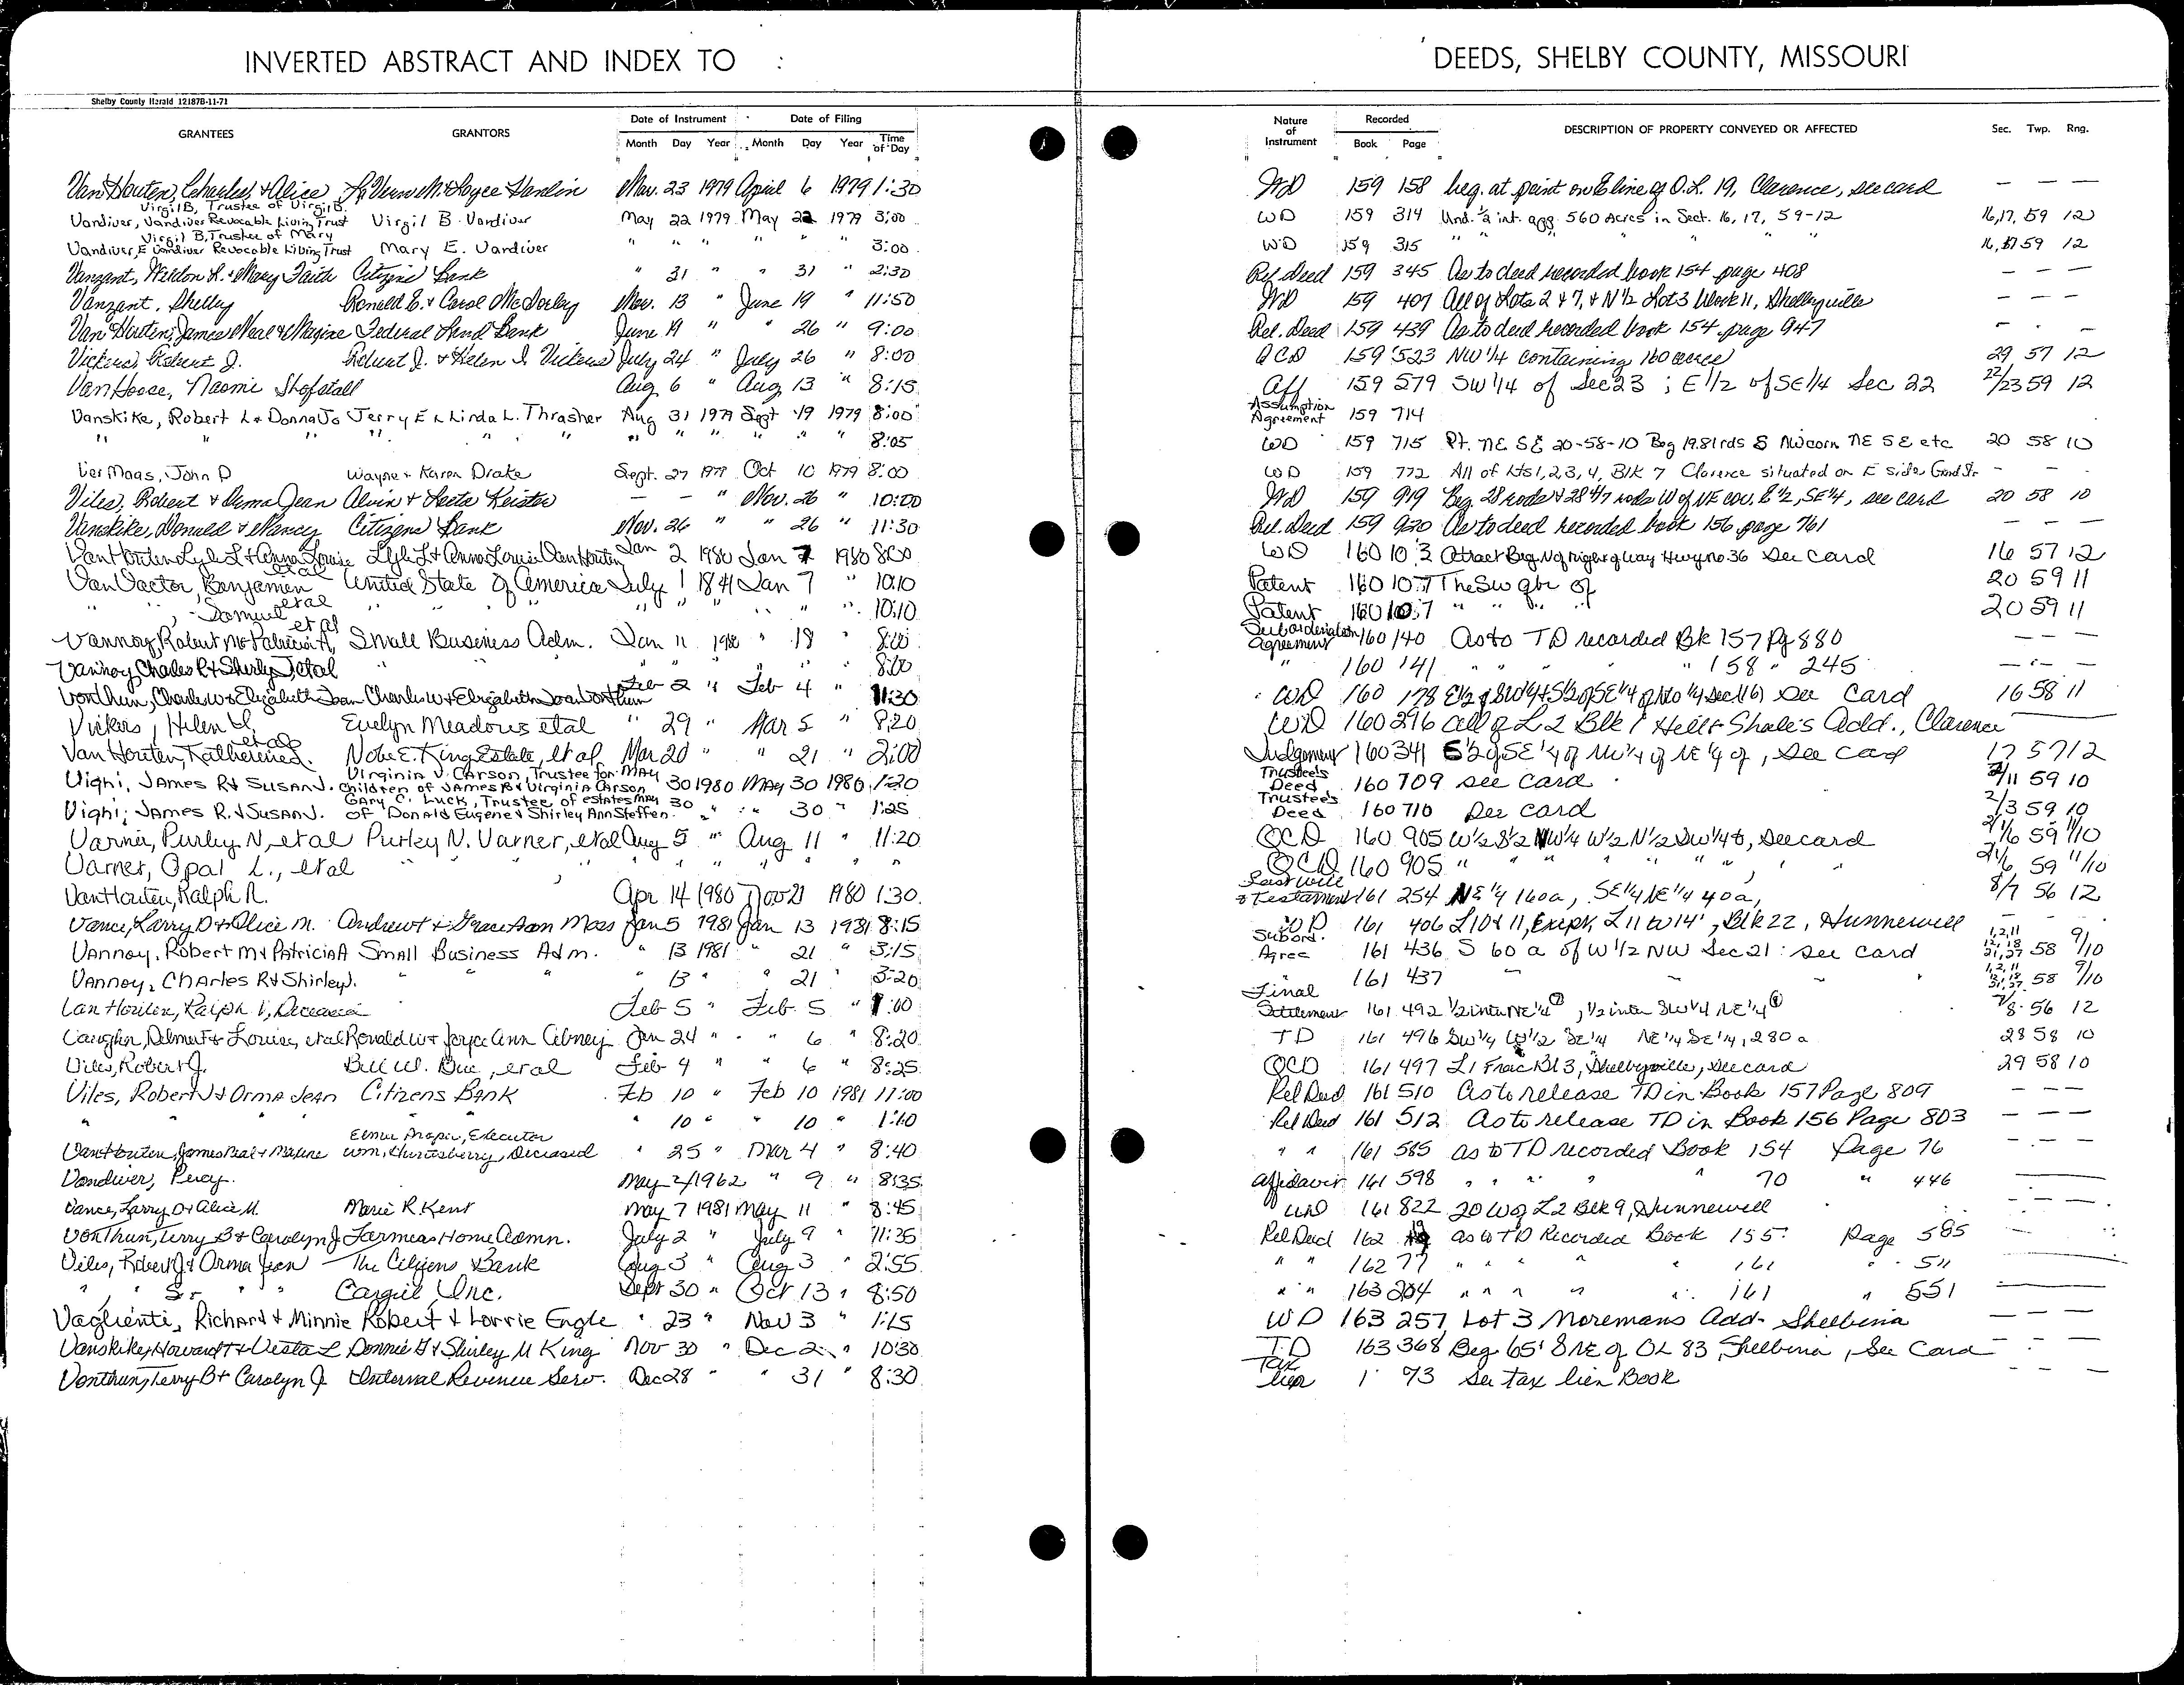 INVERTED ABSTRACT AND INDEX TO :
DEEDS, SHELBY COUNTY, MISSOURI
Shelby County Herald 12187B-11-71
GRANTEES GRANTORS Date of Instrument Date of Filing
Month Day Year Month Day Year Time of Day
Nature of Instrument Recorded Book Page DESCRIPTION OF PROPERTY CONVEYED OR AFFECTED Sec. Twp. Rng.
Van Houten, Charles & Alice LaVern M. & Joyce Hamlin Mar. 23 1979 April 6 1979 1:30 WD 159 158 beg. at point on E line of O.L. 19, Clarence, see card — — —
Virgil B, Trustee of Virgil B.
Vandiver, Vandiver Revocable Living Trust Virgil B. Vandiver May 22 1979 May 22 1979 3:00 WD 159 314 Und. 1/2 int. agg. 560 Acres in Sect. 16, 17, 59-12 16,17, 59 12
Virgil B, Trustee of Mary
Vandiver, E Vandiver Revocable Living Trust Mary E. Vandiver " " " " " 3:00 WD 159 315 " " " " 16,17 59 12
Vanzant, Weldon R. & Mary Faith Citizens Bank " 31 " " 31 " 2:30 Rel. Deed 159 345 As to deed recorded book 154 page 408 — — —
Vanzant, Shelby Ronald E. & Carol McSorley Nov. 13 " June 19 " 11:50 WD 159 407 All of Lots 2 & 7, & N 1/2 Lot 3 Block 11, Shelbyville — — —
Van Houten, James Neal & Maxine Federal Land Bank June 19 " " 26 " 9:00 Rel. Deed 159 439 As to deed recorded book 154 page 947 — — —
Vickers, Robert J. Robert J. & Helen I. Vickers July 24 " July 26 " 8:00 QCD 159 523 NW 1/4 containing 160 acres 29 57 12
Van Hoose, Naomi Shofstall Aug 6 " Aug 13 " 8:15 Aff 159 579 SW 1/4 of Sec 23 ; E 1/2 of SE 1/4 Sec 22 22/23 59 12
Vanskike, Robert L & Donna Jo Jerry E & Linda L. Thrasher Aug 31 1979 Sept 19 1979 8:00 Assumption Agreement 159 714
" " " " " " " " " " " 8:05 WD 159 715 Pt. NE SE 20-58-10 Beg 19.81 rds S NW corn NE SE etc 20 58 10
Ver Maas, John D Wayne & Karen Drake Sept. 27 1979 Oct 10 1979 8:00 WD 159 772 All of Lts 1, 2, 3, 4, Blk 7 Clarence situated on E side Grand St. — — —
Viles, Robert & Orma Jean Alvin & Leeta Keister — — " Nov. 26 " 10:00 WD 159 919 Beg. 28 rods & 28 4/7 rods W of NE cor. E 1/2, SE 1/4, see card 20 58 10
Vanskike, Donald & Nancy Citizens Bank Nov. 26 " " 26 " 11:30 Rel. Deed 159 920 As to deed recorded book 156 page 761 — — —
Van Houten Lyle L & Anna Louise et al Lyle L & Anna Louise Van Houten Jan 2 1980 Jan 7 1980 8:00 WD 160 103 A tract Beg. N of right of way Hwy no 36 See card 16 57 12
Van Vactor, Benjamen et al United State of America July 1 1841 Jan 7 " 10:10 Patent 160 107 The SW qtr of 20 59 11
" , Samuel et al " " " " " " " " 10:10 Patent 160 107 " " " 20 59 11
Vannoy, Robert M & Patricia A, Small Business Adm. Jan 11 1980 " 18 " 8:00 Subordination Agreement 160 140 As to TD recorded Bk 157 Pg 880 — — —
Vannoy, Charles R & Shirley J et al " " " " 8:00 " 160 141 " " " " 158 " 245 — — —
VonThun, Charles W & Elizabeth Joan Charles W & Elizabeth Joan VonThun Feb 2 " Feb 4 " 11:30 WD 160 178 E 1/2 of SW 1/4 & S 1/2 of SE 1/4 of No 1/4 Sec. (16) See Card 16 58 11
Vickers, Helen Evelyn Meadows et al " 29 " Mar 5 " 8:20 WD 160 296 All of L 2 Blk 1 Hill & Shale's Add., Clarence
Van Houten, Katherine et al Nobe E. King Estate, et al Mar 20 " " 21 " 2:00 Judgement 160 341 E 1/2 of SE 1/4 of NW 1/4 of NE 1/4 of , See Card 17 57 12
Vighi, JAMES R & SUSAN J. Virginia V. Carson, Trustee for Children of James B & Virginia Carson MAY 30 1980 MAy 30 1980 1:20 Trustee's Deed 160 709 see card 2/11 59 10
Vighi, JAMES R. & SUSAN J. GARY C. Luck, Trustee of estates of Donald Eugene & Shirley Ann Steffen MAY 30 " " 30 " 1:25 Trustee's Deed 160 710 See card 2/3 59 10
Varner, Purley N, et al Purley N. Varner, et al Aug 5 " Aug 11 " 11:20 QCD 160 905 W 1/2 S 1/2 NW 1/4 W 1/2 N 1/2 SW 1/4 &, See card 59 11/10
Varner, Opal L., et al " " " " " " " QCD 160 905 " " " " " 59 11/10
Van Houten, Ralph R. Apr 14 1980 Nov 21 1980 1:30 Last Will & Testament 161 254 NE 1/4 160a, SE 1/4 NE 1/4 40a, 8/7 56 12
Vance, Larry D & Alice M. Andrew & Grace Ann Moss Jan 5 1981 Jan 13 1981 8:15 WD 161 406 L 10 & 11, Except L 11 W 14', Blk 22, Hunnewell
Vannoy, Robert M & Patricia A Small Business Adm. " 13 1981 " 21 " 3:15 Subord. Agree 161 436 S 60 a of W 1/2 NW Sec 21 : see card 1,2,11 12,18 21,27 58 9/10
Vannoy, Charles R & Shirley J. " " " 13 " " 21 " 3:20 161 437 " " " 1,2,11 12,18 21,27 58 9/10
Van Houten, Ralph R, Deceased Feb 5 " Feb. 5 " 1:00 Final Settlement 161 492 1/2 inter NE 1/4, 1/2 inter SW 1/4 NE 1/4 7/8 56 12
Vaughn, Delmar & Louise, et al Ronald W & Joyce Ann Abney Jan 24 " " 6 " 8:20 TD 161 496 SW 1/4 W 1/2 SE 1/4 NE 1/4 SE 1/4, 280 a 28 58 10
Viles, Robert J. Bill W. Bue, et al Feb 4 " " 6 " 8:25 QCD 161 497 L 1 Frac Bl 3, Shelbyville, See card 29 58 10
Viles, Robert J & Orma Jean Citizens Bank Feb 10 " Feb 10 1981 11:00 Rel Deed 161 510 As to release TD in Book 157 Page 809 — — —
" " " " 10 " " 10 " 1:10 Rel Deed 161 512 As to release TD in Book 156 Page 803 — — —
Van Houten, James Neal & Maxine Elmer Draper, Executor Wm. Huntsberry, Deceased " 25 " Mar 4 " 8:40 " " 161 585 as to TD recorded Book 154 Page 76 — — —
Vandiver, Percy. May 2 1962 " 9 " 8:35 Affidavit 161 598 " " " " 70 " 446
Vance, Larry D & Alice M. Marie R. Kent May 7 1981 May 11 " 8:45 WD 161 822 20 W of L 2 Blk 9, Hunnewell
VonThun, Terry B & Carolyn J Farmers Home Admn. July 2 " July 9 " 11:35 Rel Deed 162 as to TD Recorded Book 155 Page 585
Viles, Robert J & Orma Jean The Citizens Bank Aug 3 " Aug 3 " 2:55 " " 162 77 " " " " 161 " 511
" , " Sr " " Cargill, Inc. Sept 30 " Oct 13 " 8:50 " " 163 204 " " " " 161 " 551
Vaglienti, Richard & Minnie Robert & Lorrie Engle " 23 " Nov 3 " 1:15 WD 163 257 Lot 3 Moremans Add- Shelbina — — —
Vanskike, Howard T & Vesta L Donnie G & Shirley M King Nov 30 " Dec 2 " 10:30 TD 163 368 Beg 65' S NE of OL 83, Shelbina, See Card
Vonthun, Terry B & Carolyn J Internal Revenue Serv. Dec 28 " " 31 " 8:30 Tax lien 1 73 See tax lien Book — — —